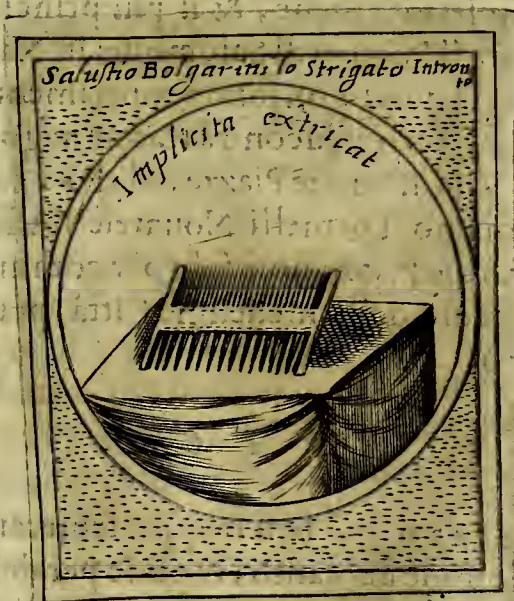 Salustio Bolgarini lo Strigato Intron
to
Implicita extricat